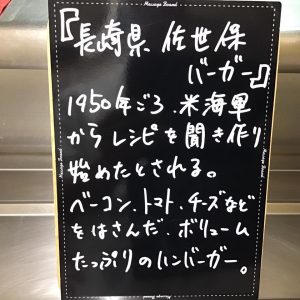 Message Board
『長崎県 佐世保
バーガー』
1950年ごろ、米海軍
からレシピを聞き作り
始めたとされる。
ベーコン、トマト、チーズなど
をはさんだ、ボリューム
たっぷりのハンバーガー。
Message Board
Message Board
Message Board